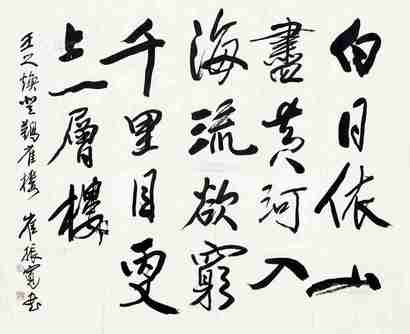 白日依山
盡黃河入
海流欲窮
千里目更
上一層樓
王之煥登鸛雀樓 崔振寬書